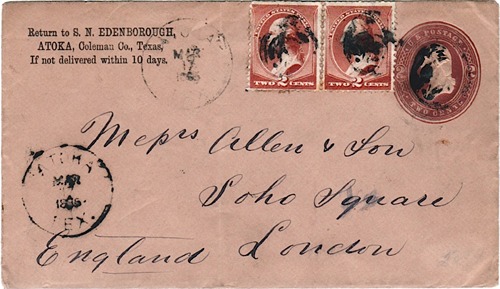 Return to S. N. EDENBOROUGH,
ATOKA, Coleman Co., Texas,
If not delivered within 10 days.
MAR
TWO 2 CENTS
TWO 2 CENTS
U.S. POSTAGE
TWO CENTS
MAR
TEX.
Messrs Allen & Son
Soho Square
England London